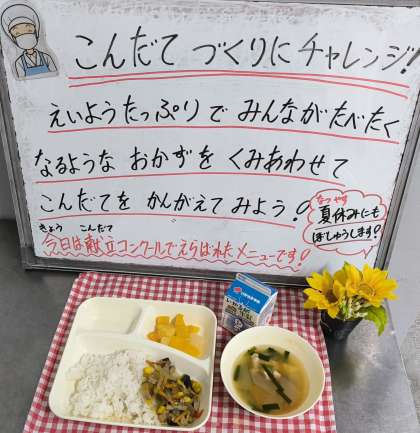 こんだて づくりに チャレンジ!
えいようたっぷりで みんながたべたく
なるような おかずを くみあわせて
こんだてを かんがえて みよう!
なつやす
夏休みにも
ぼしゅうします!
きょう こんだて
今日は献立コンクールでえらばれたメニューです!